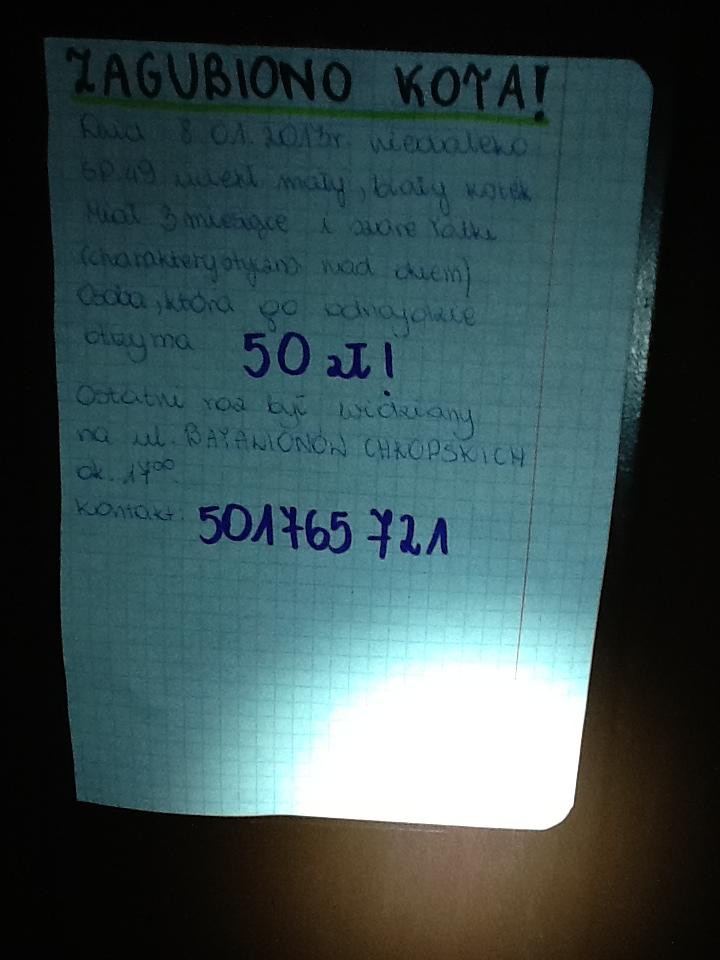 ZAGUBIONO KOTA!
Dnia 8.01.2013r. niedaleko
SP.49 uciekł mały, biały kotek
Miał 3 miesiące i szare łatki
(charakterystyczna nad okiem)
Osoba, która go odnajdzie
otrzyma 50 zł!
Ostatni raz był widziany
na ul. BATALIONÓW CHŁOPSKICH
ok. 17⁰⁰.
Kontakt: 501765 721